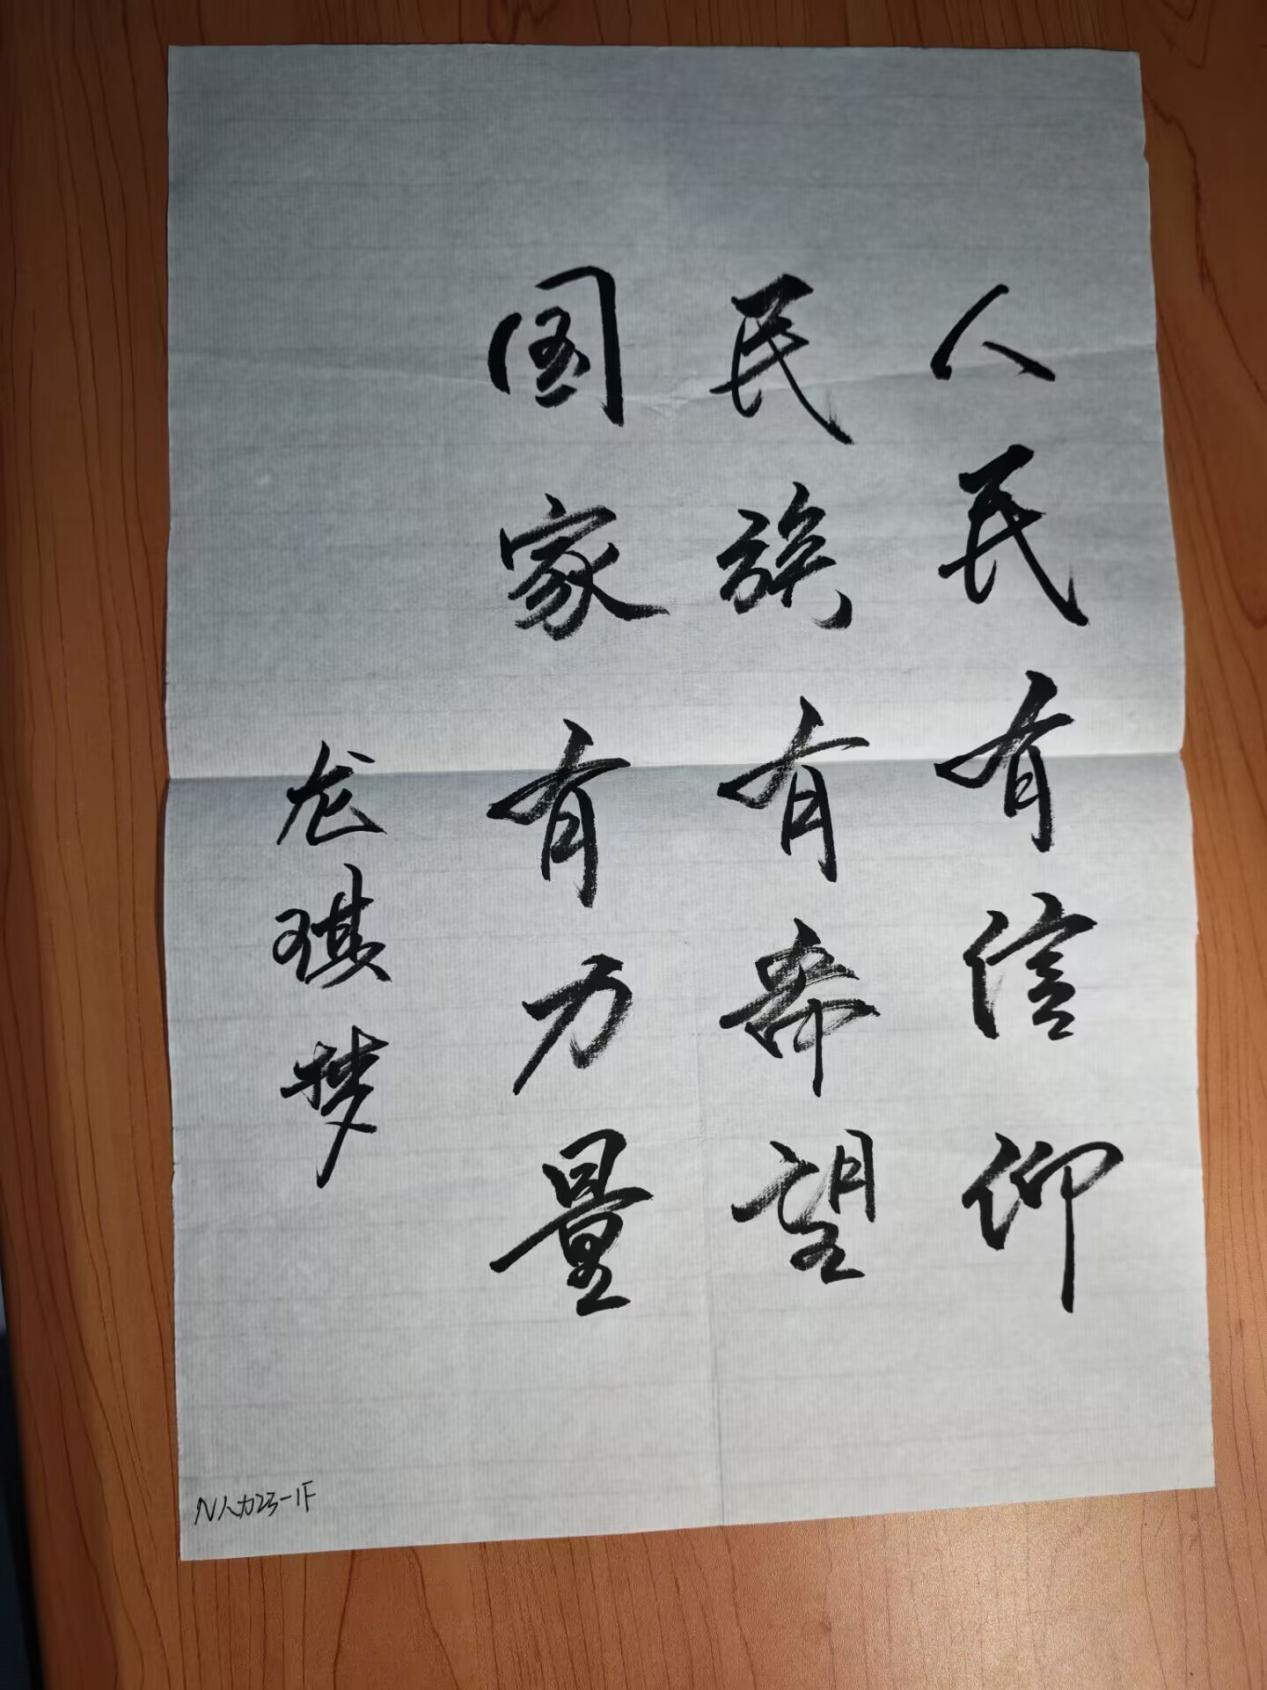 人民有信仰
民族有希望
国家有力量
龙琪梦
N人力23-1F